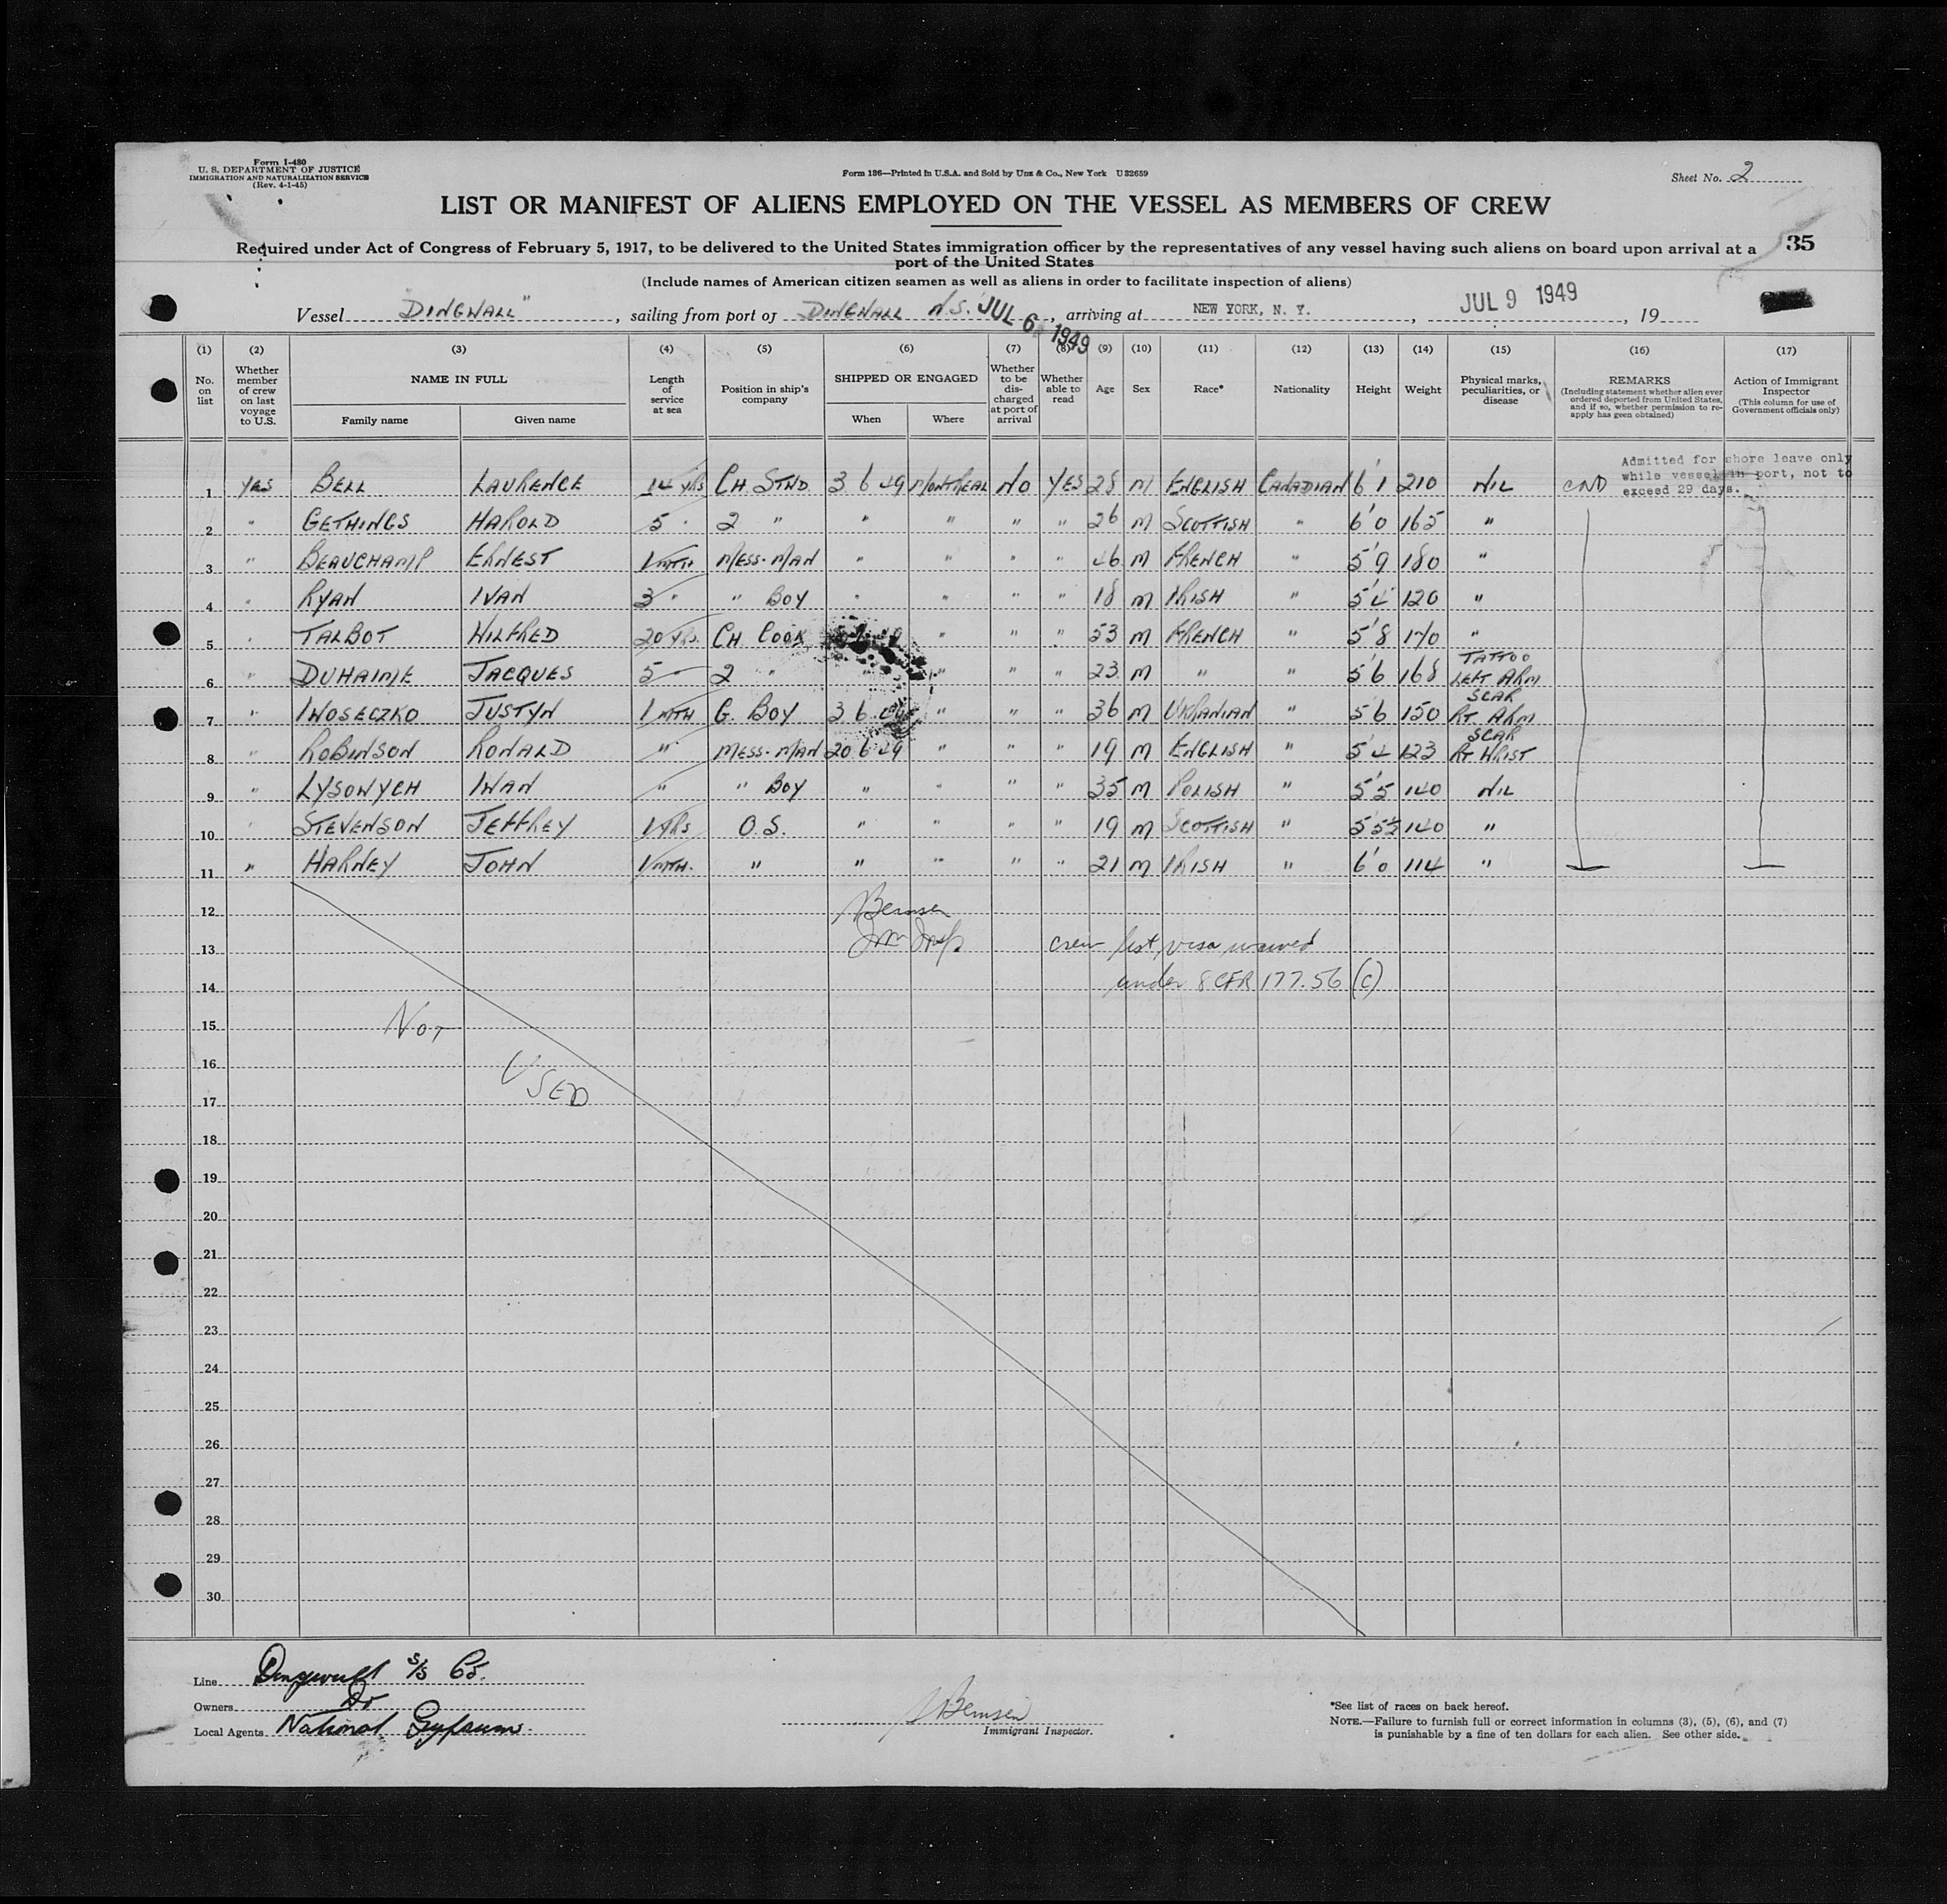 Form I-480
U. S. DEPARTMENT OF JUSTICE
IMMIGRATION AND NATURALIZATION SERVICE
(Rev. 4-1-45)
Form 186—Printed in U.S.A. and Sold by Unz & Co., New York U32659
Sheet No. 2
LIST OR MANIFEST OF ALIENS EMPLOYED ON THE VESSEL AS MEMBERS OF CREW
Required under Act of Congress of February 5, 1917, to be delivered to the United States immigration officer by the representatives of any vessel having such aliens on board upon arrival at a
port of the United States
35
(Include names of American citizen seamen as well as aliens in order to facilitate inspection of aliens)
Vessel "DINGWALL", sailing from port of DINGWALL N.S. JUL 6 1949, arriving at NEW YORK, N. Y., JUL 9 1949, 19
(1) (2) (3) (4) (5) (6) (7) (8) (9) (10) (11) (12) (13) (14) (15) (16) (17)
No. on list
Whether member of crew on last voyage to U.S.
NAME IN FULL
Family name
Given name
Length of service at sea
Position in ship's company
SHIPPED OR ENGAGED
When
Where
Whether to be discharged at port of arrival
Whether able to read
Age
Sex
Race*
Nationality
Height
Weight
Physical marks, peculiarities, or disease
REMARKS
(Including statement whether alien ever ordered deported from United States, and if so, whether permission to re-apply has geen obtained)
Action of Immigrant Inspector
(This column for use of Government officials only)
Admitted for shore leave only
while vessel in port, not to
exceed 29 days.
1 YES BELL LAURENCE 14 YRS CH. STWD. 3 6 49 MONTREAL NO YES 28 M ENGLISH CANADIAN 6'1 210 NIL CND
2 " GETHINGS HAROLD 5 " 2 " " " " " 26 M SCOTTISH " 6'0 165 "
3 " BEAUCHAMP ERNEST 1 MTH MESS-MAN " " " " 46 M FRENCH " 5'9 180 "
4 " RYAN IVAN 3 " " BOY " " " " 18 M IRISH " 5'4 120 "
5 " TALBOT WILFRED 20 YRS. CH. COOK " " " 53 M FRENCH " 5'8 170 "
6 " DUHAIME JACQUES 5 2 " " " " 23 M " " 5'6 168 TATTOO LEFT ARM
7 " IWOSECZKO JUSTYN 1 MTH G. BOY 3 6 49 " " " 36 M UKRANIAN " 5'6 150 SCAR RT. ARM
8 " ROBINSON RONALD " MESS-MAN 20 6 49 " " " 19 M ENGLISH " 5'4 123 SCAR RT. WRIST
9 " LYSOWYCH IWAN " " BOY " " " " 35 M POLISH " 5'5 140 NIL
10 " STEVENSON JEFFREY 1 YRS O.S. " " " " 19 M SCOTTISH " 5'5½ 140 "
11 " HARNEY JOHN 1 MTH. " " " " " 21 M IRISH " 6'0 114 "
12
13 crew list visa waived
14 under 8 CFR 177.56 (c)
15 NOT
16
17 USED
18
19
20
21
22
23
24
25
26
27
28
29
30
Line Dingwall S/S Co.
Owners Do
Local Agents National Gypsum
Immigrant Inspector.
*See list of races on back hereof.
NOTE.—Failure to furnish full or correct information in columns (3), (5), (6), and (7)
is punishable by a fine of ten dollars for each alien. See other side.